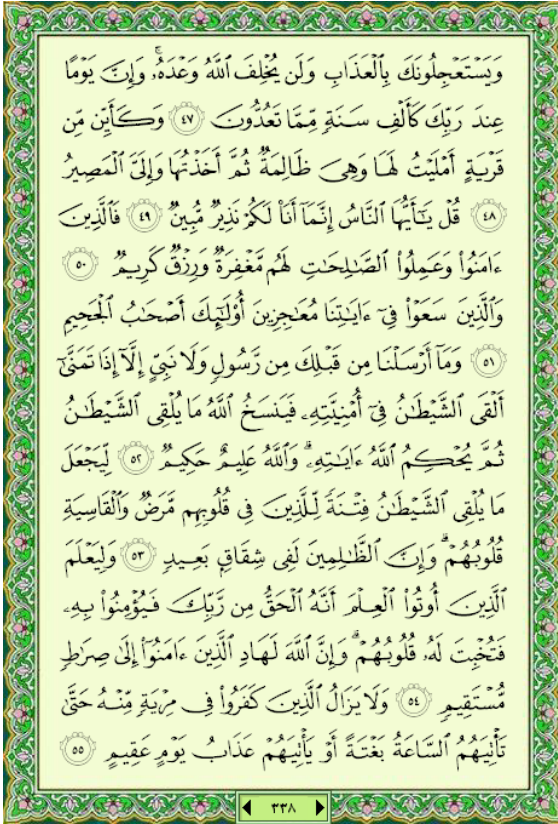 وَيَسۡتَعۡجِلُونَكَ بِٱلۡعَذَابِ وَلَن يُخۡلِفَ ٱللَّهُ وَعۡدَهُۥۚ وَإِنَّ يَوۡمًا
عِندَ رَبِّكَ كَأَلۡفِ سَنَةٖ مِّمَّا تَعُدُّونَ ٤٧ وَكَأَيِّن مِّن
قَرۡيَةٍ أَمۡلَيۡتُ لَهَا وَهِيَ ظَالِمَةٞ ثُمَّ أَخَذۡتُهَا وَإِلَيَّ ٱلۡمَصِيرُ
٤٨ قُلۡ يَٰٓأَيُّهَا ٱلنَّاسُ إِنَّمَآ أَنَا۠ لَكُمۡ نَذِيرٞ مُّبِينٞ ٤٩ فَٱلَّذِينَ
ءَامَنُواْ وَعَمِلُواْ ٱلصَّٰلِحَٰتِ لَهُم مَّغۡفِرَةٞ وَرِزۡقٞ كَرِيمٞ ٥٠
وَٱلَّذِينَ سَعَوۡاْ فِيٓ ءَايَٰتِنَا مُعَٰجِزِينَ أُوْلَٰٓئِكَ أَصۡحَٰبُ ٱلۡجَحِيمِ
٥١ وَمَآ أَرۡسَلۡنَا مِن قَبۡلِكَ مِن رَّسُولٖ وَلَا نَبِيٍّ إِلَّآ إِذَا تَمَنَّىٰٓ
أَلۡقَى ٱلشَّيۡطَٰنُ فِيٓ أُمۡنِيَّتِهِۦ فَيَنسَخُ ٱللَّهُ مَا يُلۡقِي ٱلشَّيۡطَٰنُ
ثُمَّ يُحۡكِمُ ٱللَّهُ ءَايَٰتِهِۦۗ وَٱللَّهُ عَلِيمٌ حَكِيمٞ ٥٢ لِّيَجۡعَلَ
مَا يُلۡقِي ٱلشَّيۡطَٰنُ فِتۡنَةٗ لِّلَّذِينَ فِي قُلُوبِهِم مَّرَضٞ وَٱلۡقَاسِيَةِ
قُلُوبُهُمۡۗ وَإِنَّ ٱلظَّٰلِمِينَ لَفِي شِقَاقِۭ بَعِيدٖ ٥٣ وَلِيَعۡلَمَ
ٱلَّذِينَ أُوتُواْ ٱلۡعِلۡمَ أَنَّهُ ٱلۡحَقُّ مِن رَّبِّكَ فَيُؤۡمِنُواْ بِهِۦ
فَتُخۡبِتَ لَهُۥ قُلُوبُهُمۡۗ وَإِنَّ ٱللَّهَ لَهَادِ ٱلَّذِينَ ءَامَنُوٓاْ إِلَىٰ صِرَٰطٖ
مُّسۡتَقِيمٖ ٥٤ وَلَا يَزَالُ ٱلَّذِينَ كَفَرُواْ فِي مِرۡيَةٖ مِّنۡهُ حَتَّىٰ
تَأۡتِيَهُمُ ٱلسَّاعَةُ بَغۡتَةً أَوۡ يَأۡتِيَهُمۡ عَذَابُ يَوۡمٍ عَقِيمٍ ٥٥
٣٣٨